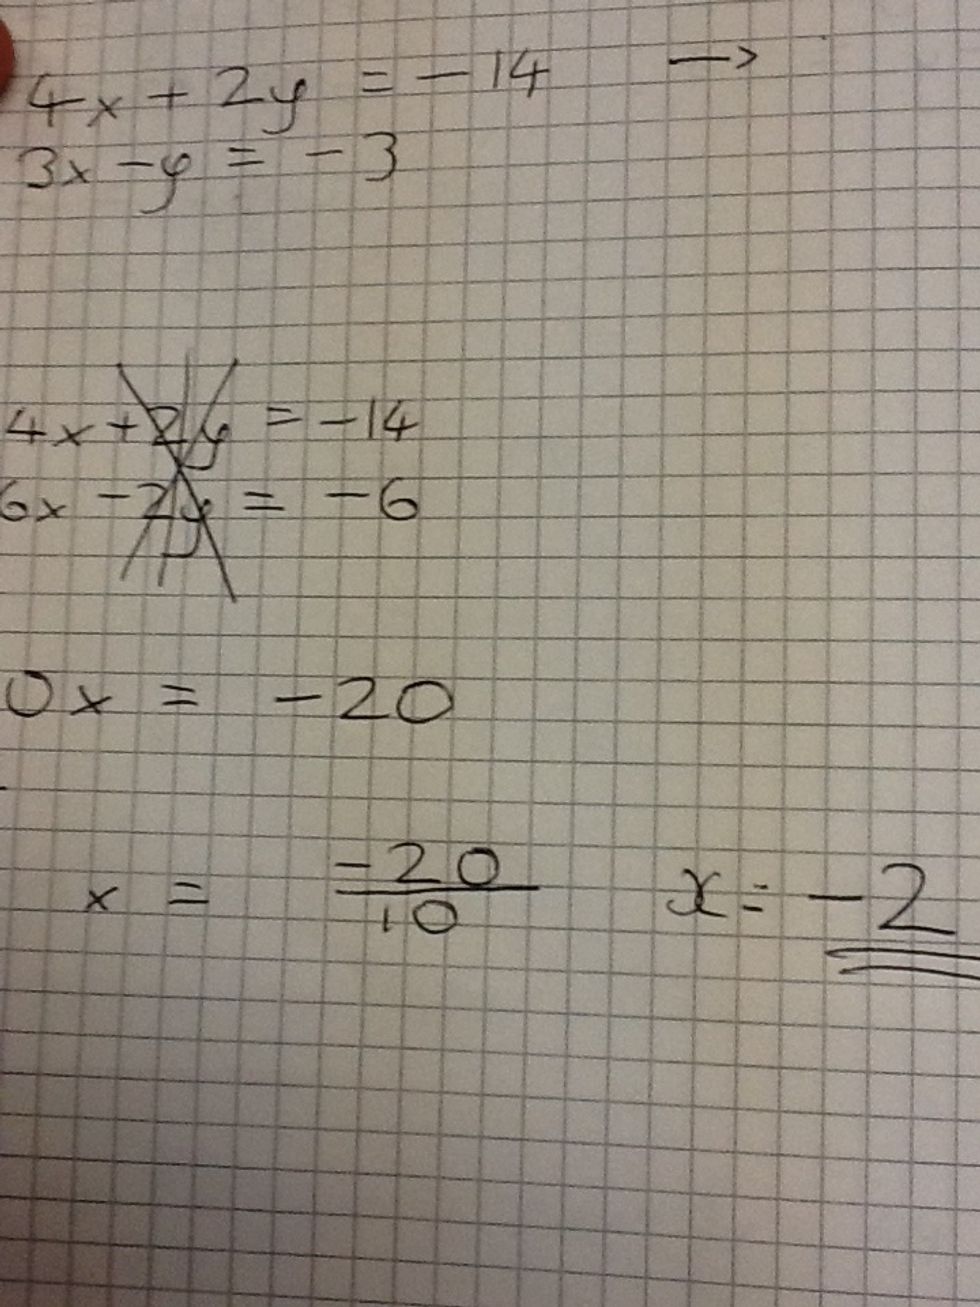 4x + 2y = -14 →
3x - y = -3
4x + 2y = -14
6x - 2y = -6
0x = -20
x = -20/10 x = -2